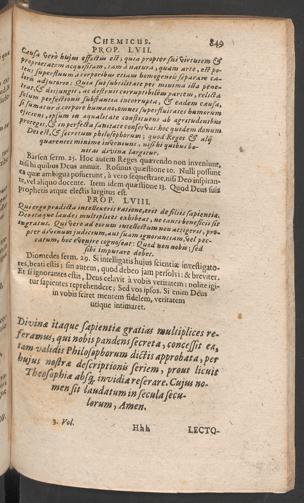 CHEMICUS. 849
PROP. LVII.
Causa verò hujus effectus est, quia propter sui virtutem &
proprietatem acquisitam, tam à natura, quàm arte, est po-
tens superfluum à corporibus etiam homogeneo separare ca-
loris adjutorio: Quia sui subtilitate per minima illa pene-
trat, & disjungit, ac destruit corruptibilem partem, relicta
solum perfectionis substantia incorrupta, & eadem causa,
si sumatur à corpore humano, omnes superfluitates humorum
ejiciens, ipsum in aequalitate constitutum ab aegritudinibus
proteget, & in perfecta sanitate conservat: hoc quidem donum
Dei est, & secretum philosophorum; quod Reges & alij
quaerentes minime invenerunt, nisi hi quibus bo-
nitas divina largitur.
Barsen serm. 25. Hoc autem Reges quaerendo non inveniunt,
nisi hi quibus Deus annuit. Rosinus quaestione 10. Nulli possunt
ea quae ambigua posuerunt, à vero sequestrare, nisi Deo inspiran-
te, vel aliquo docente. Item idem quaestione 13. Quod Deus suis
Prophetis atque electis largitus est.
PROP. LVIII.
Qui ergo praedicta intellexerit ratione, erit de filiis sapientiae.
Deo itaque laudes multiplices exhibeat, ne tanti beneficii sit
ingratus. Qui verò ad eorum intellectum non attigerit, pro-
pter divinum judicium, aut suam ignorantiam, vel pec-
catum, hoc evenire cognoscat: Quod non nobis; sed
sibi imputare debet.
Diomedes serm. 29. Si intelligatis hujus scientiae investigato-
res, beati estis; sin autem, quod debeo jam persolvi: & breviter.
Et si ignorantes estis, Deus celavit à vobis veritatem: nolite igi-
tur sapientes reprehendere; Sed vos ipsos. Si enim Deus
in vobis sciret mentem fidelem, veritatem
utique intimaret.
Divinae itaque sapientiae gratias multiplices re-
feramus, qui nobis pandens secreta, concessit ea,
tam validis Philosophorum dictis approbata, per
hujus nostrae descriptionis seriem, prout licuit
Theosophiae absq; invidia reserare. Cujus no-
men sit laudatum in secula secu-
lorum, Amen.
3. Vol. Hhh LECTO-